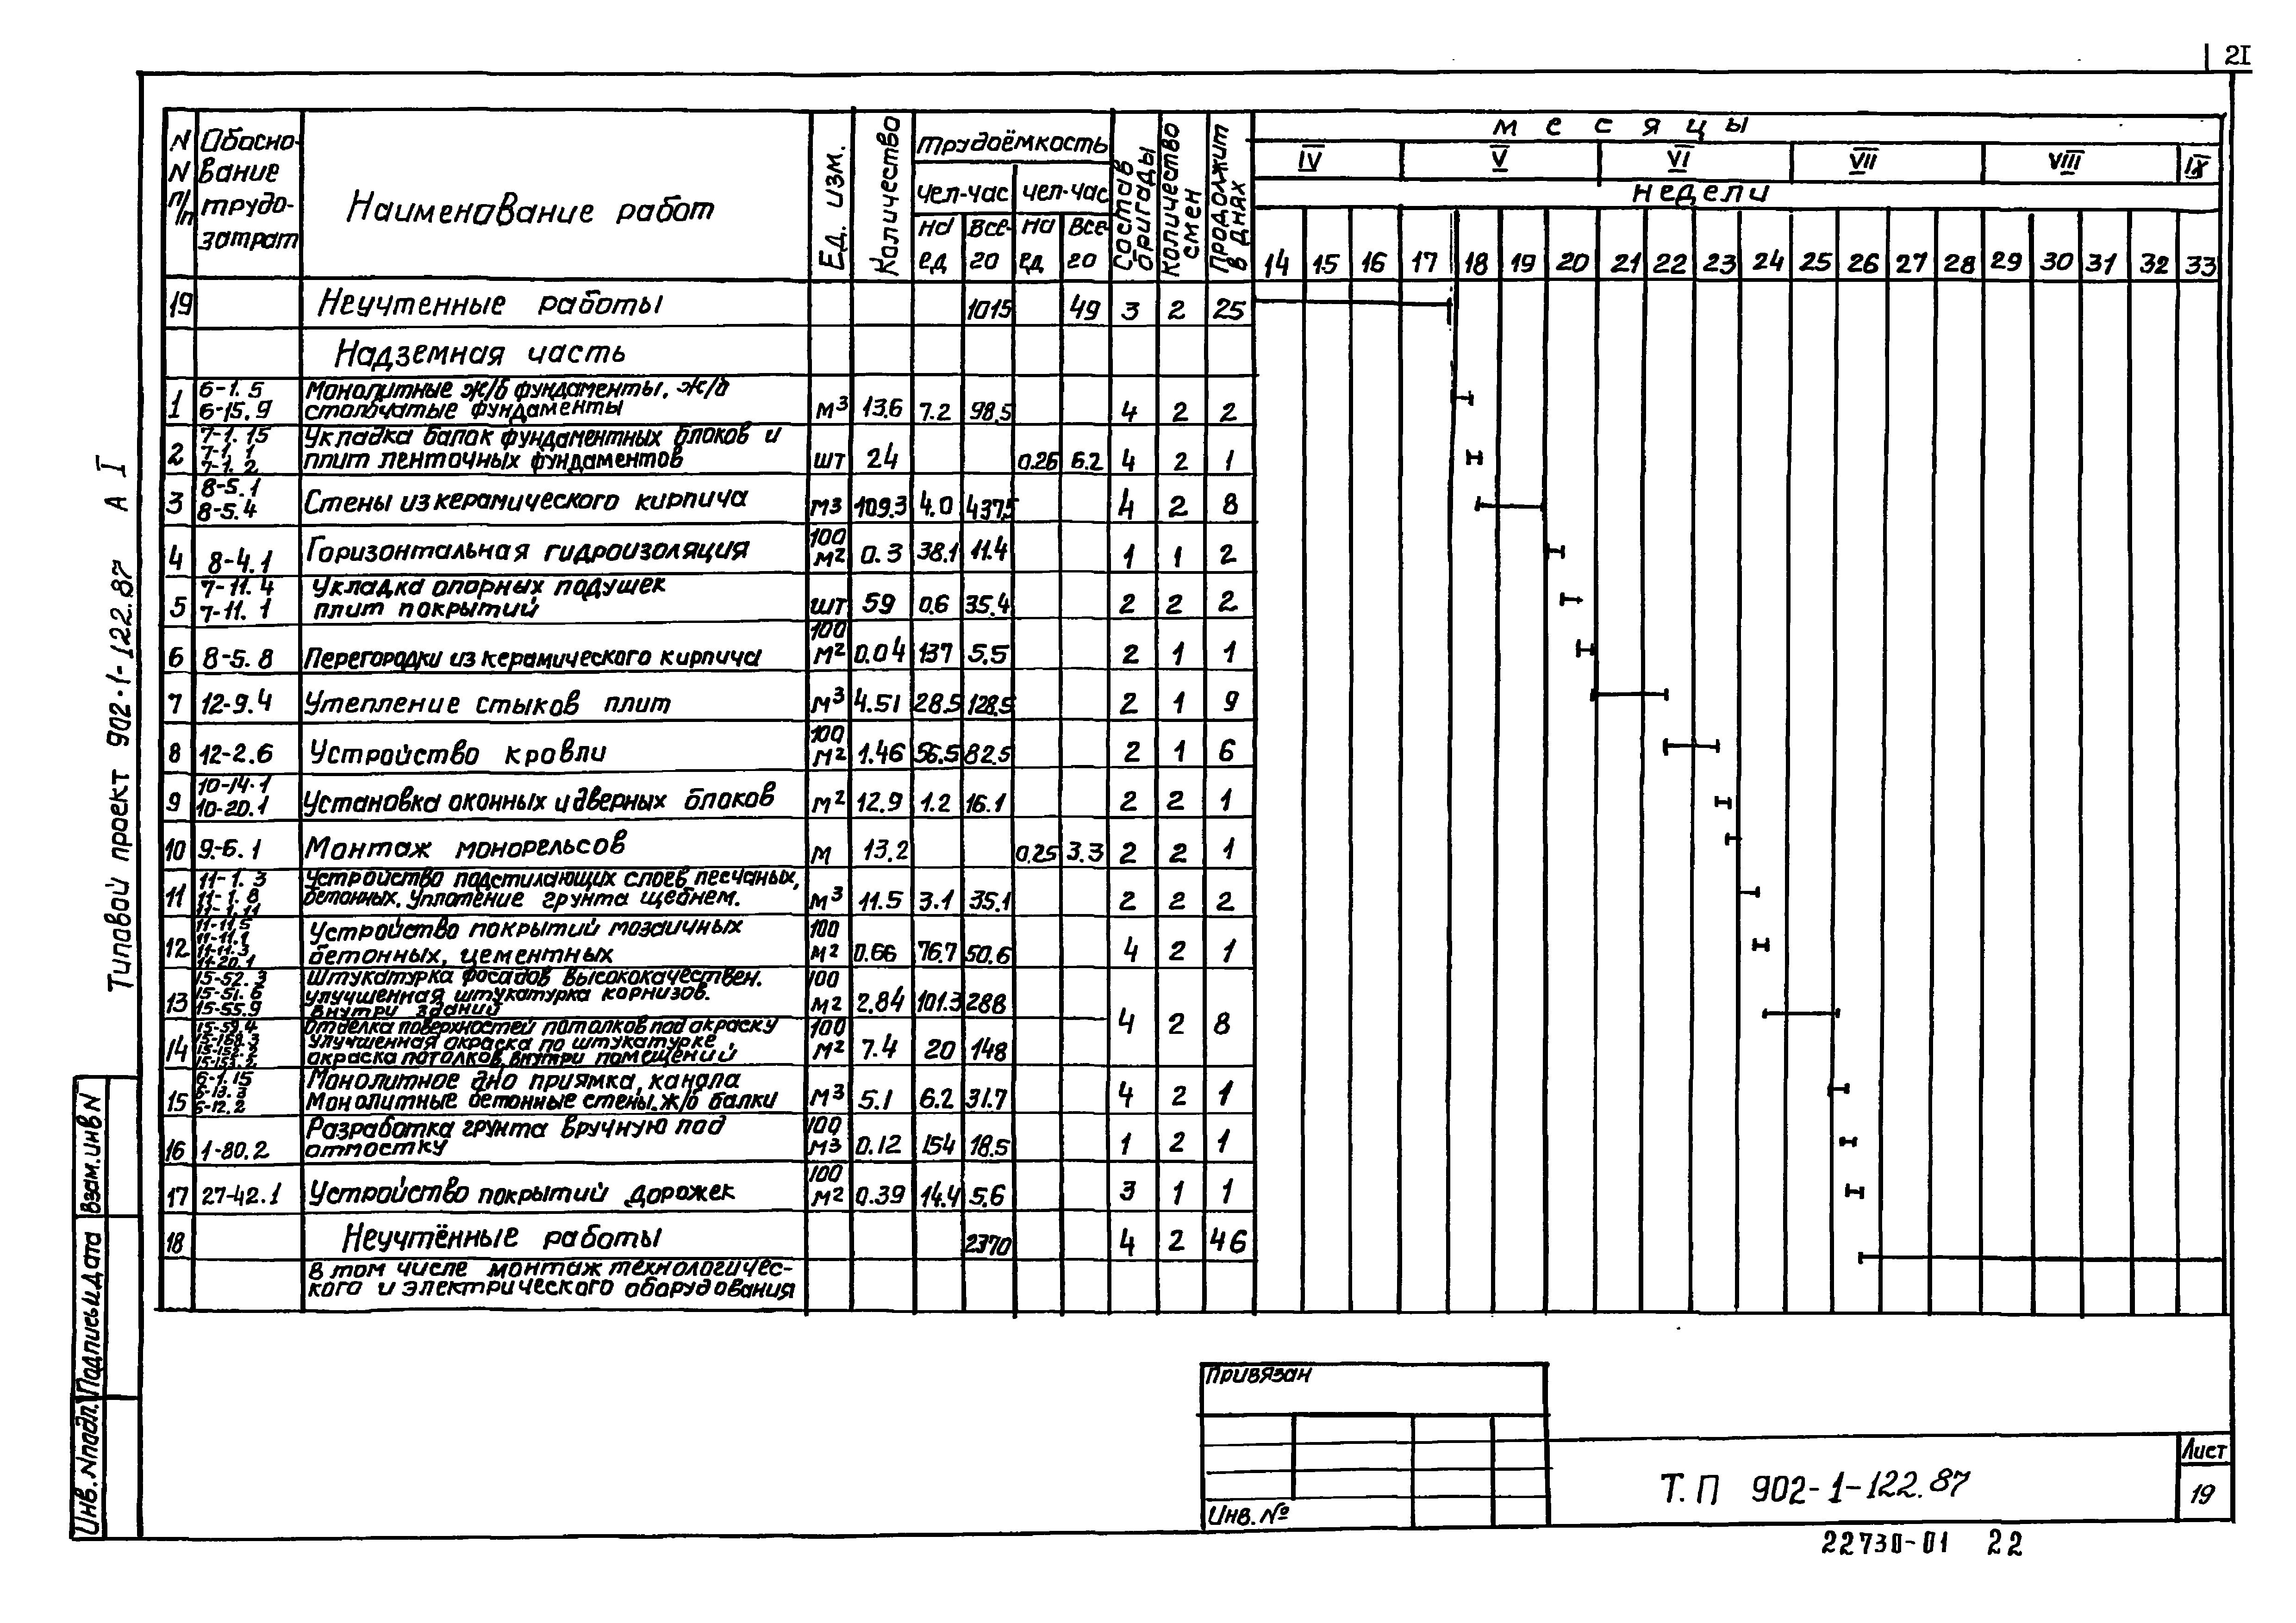 21
N N п/п Обосно-вание трудо-затрат Наименование работ Ед. изм. Количество трудоёмкость Состав бригады Количество смен Продолжит в днях месяцы
чел-час чел-час IV V VI VII VIII IX
недели
на ед Все-го на ед Все-го 14 15 16 17 18 19 20 21 22 23 24 25 26 27 28 29 30 31 32 33
19 Неучтенные работы 1015 49 3 2 25
Надземная часть
1 6-1.5 Монолитные ж/б фундаменты, ж/б
6-15.9 столбчатые фундаменты м3 13.6 7.2 98.5 4 2 2
2 7-1.15 Укладка балок фундаментных блоков и
7-1.1
7-1.2 плит ленточных фундаментов шт 24 0.26 6.2 4 2 1
3 8-5.1
8-5.4 Стены из керамического кирпича м3 109.3 4.0 437.5 4 2 8
4 8-4.1 Горизонтальная гидроизоляция 100 м2 0.3 38.1 11.4 1 1 2
5 7-11.4 Укладка опорных подушек
7-11.1 плит покрытий шт 59 0.6 35.4 2 2 2
6 8-5.8 Перегородки из керамического кирпича 100 м2 0.04 137 5.5 2 1 1
7 12-9.4 Утепление стыков плит м3 4.51 28.5 128.5 2 1 9
8 12-2.6 Устройство кровли 100 м2 1.46 56.5 82.5 2 1 6
9 10-14.1
10-20.1 Установка оконных и дверных блоков м2 12.9 1.2 16.1 2 2 1
10 9-6.1 Монтаж монорельсов м 13.2 0.25 3.3 2 2 1
11 11-1.3 Устройство подстилающих слоев песчаных,
11-1.8
11-1.11 бетонных. Уплотение грунта щебнем. м3 11.5 3.1 35.1 2 2 2
12 11-11.5 Устройство покрытий мозаичных
11-11.1
11-11.3
11-20.1 бетонных, цементных 100 м2 0.66 76.7 50.6 4 2 1
13 15-52.3 Штукатурка фосадов высококачествен.
15-51.6 улучшенная штукатурка корнизов.
15-55.9 внутри зданий 100 м2 2.84 101.3 288 4 2 8
14 15-59.4 Отделка поверхностей потолков под окраску
улучшенная окраска по штукатурке,
окраска потолков, внутри помещений 100 м2 7.4 20 148
15 6-1.15 Монолитное дно приямка, канала
6-13.3
6-12.2 Монолитные бетонные стены. ж/б балки м3 5.1 6.2 31.7 4 2 1
16 1-80.2 Разработка грунта вручную под
отмостку 100 м3 0.12 154 18.5 1 2 1
17 27-42.1 Устройство покрытий дорожек 100 м2 0.39 14.4 5.6 3 1 1
18 Неучтённые работы 2370 4 2 46
в том числе монтаж технологичес-
кого и электрического оборудования
Типовой проект 902-1-122.87 А I
Взам.инв N
Подпись и дата
Инв. N подл.
Привязан
Инв. №
Т.П 902-1-122.87
Лист
19
22730-01 22